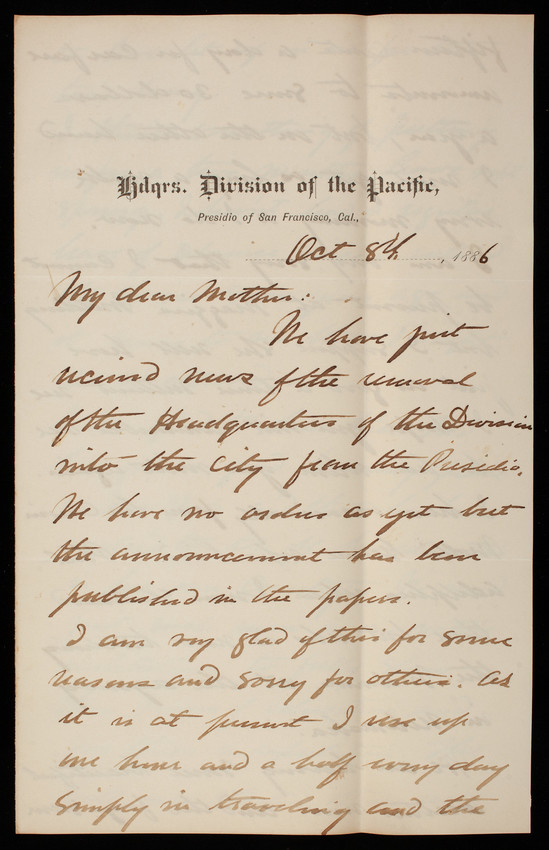 Hdqrs. Division of the Pacific,
Presidio of San Francisco, Cal.,
Oct 8th, 1886
My dear Mother:
We have just
received news of the removal
of the Headquarters of the Division
into the City from the Presidio.
We have no orders as yet but
the announcement has been
published in the papers.
I am very glad of this for some
reasons and sorry for others. As
it is at present I use up
one hour and a half every day
simply in traveling and the